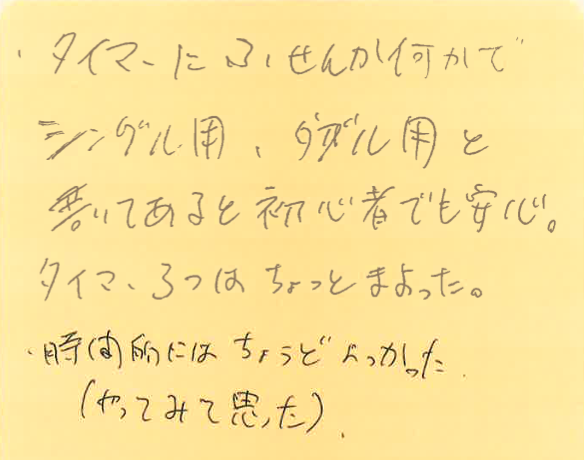 ・タイマーにふせんか何かで
シングル用、ダブル用と
書いてあると初心者でも安心。
タイマー3つはちょっとまよった。
・時間的にはちょうどよかった.
(やってみて思った).